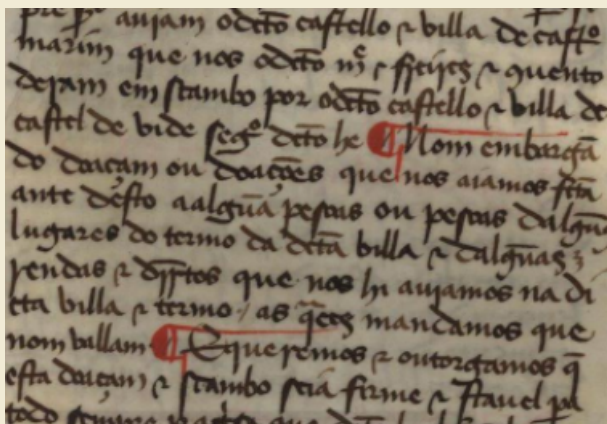 auiam o dcto castello ⁊ villa de cast͂o
marim que nos o dcto m͂e ⁊ ffreires ⁊ quento
deram em stambo por o dcto castello ⁊ villa de
castel de vide seg͂o dcto he ¶ Nom embargã
do doaçam ou doaçõees que nos aiamos fcta
ante desto a algũa pesoas ou pesoas dalgũa
lugares do termo da dcta villa ⁊ dalgũas
rendas ⁊ dr͂tos que nos hi auiamos na di
cta villa ⁊ termo / as q͂ees mandamos que
nom vallam ¶ E queremos ⁊ outorgamos q̃
esta doaçam ⁊ stambo seia firme ⁊ stauel pa
todo